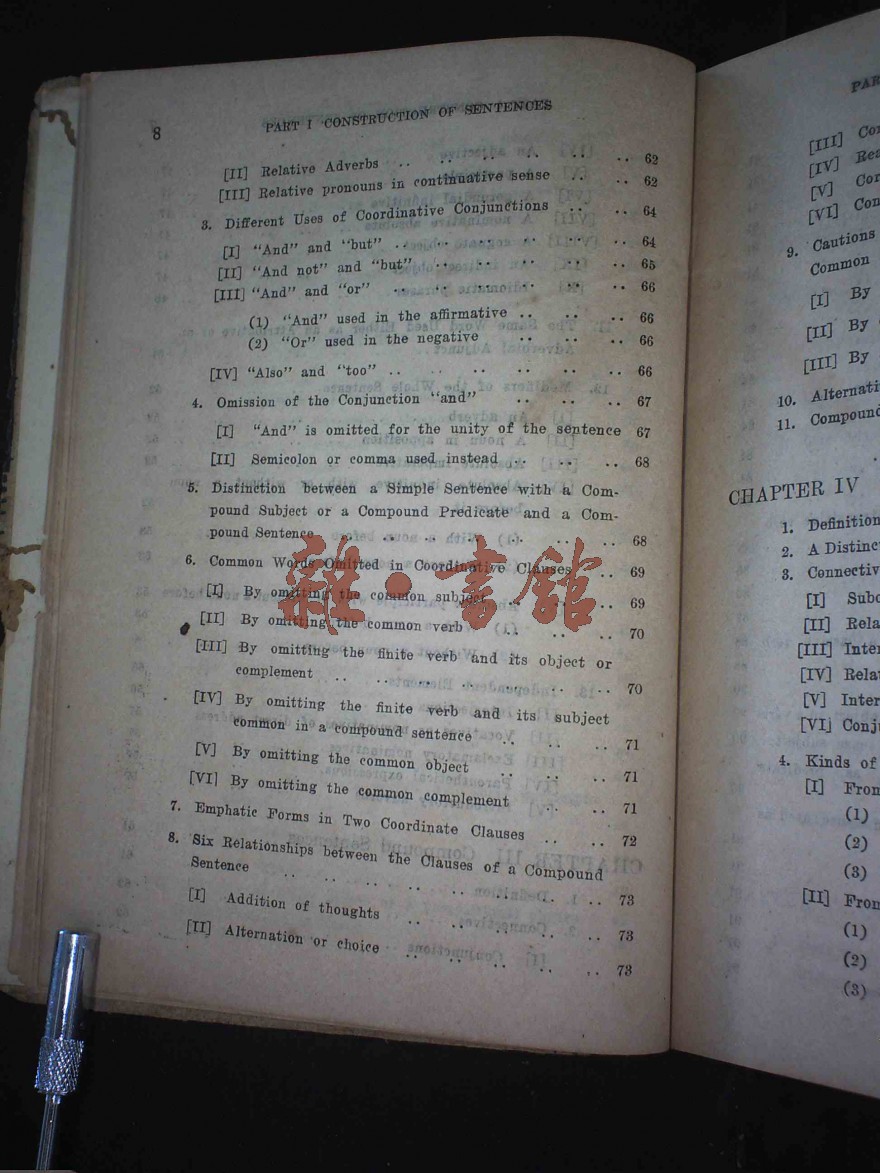 8 PART I CONSTRUCTION OF SENTENCES
[II] Relative Adverbs .. .. .. .. .. .. 62
[III] Relative pronouns in continuative sense .. .. 62
3. Different Uses of Coordinative Conjunctions .. .. 64
[I] “And” and “but” .. .. .. .. .. .. 64
[II] “And not” and “but” .. .. .. .. .. 65
[III] “And” and “or” .. .. .. .. .. .. 66
(1) “And” used in the affirmative .. .. .. 66
(2) “Or” used in the negative .. .. .. 66
[IV] “Also” and “too” .. .. .. .. .. .. 66
4. Omission of the Conjunction “and” .. .. .. 67
[I] “And” is omitted for the unity of the sentence 67
[II] Semicolon or comma used instead .. .. .. 68
5. Distinction between a Simple Sentence with a Com-
pound Subject or a Compound Predicate and a Com-
pound Sentence .. .. .. .. .. .. .. 68
6. Common Words Omitted in Coordinative Clauses .. 69
[I] By omitting the common subject .. .. .. 69
[II] By omitting the common verb .. .. .. 70
[III] By omitting the finite verb and its object or
complement .. .. .. .. .. .. .. 70
[IV] By omitting the finite verb and its subject
common in a compound sentence .. .. .. 71
[V] By omitting the common object .. .. .. 71
[VI] By omitting the common complement .. .. 71
7. Emphatic Forms in Two Coordinate Clauses .. .. 72
8. Six Relationships between the Clauses of a Compound
Sentence .. .. .. .. .. .. .. .. 73
[I] Addition of thoughts .. .. .. .. .. 73
[II] Alternation or choice .. .. .. .. .. 73
雜·書館
[III]
[IV]
[V]
[VI]
9. Cautions
Common
[I] By
[II] By
[III] By
10.
11.
CHAPTER IV
1.
2. A
3.
[I]
[II]
[III]
[IV]
[V]
[VI]
4. Kinds of
[I]
(1)
(2)
(3)
[II]
(1)
(2)
(3)